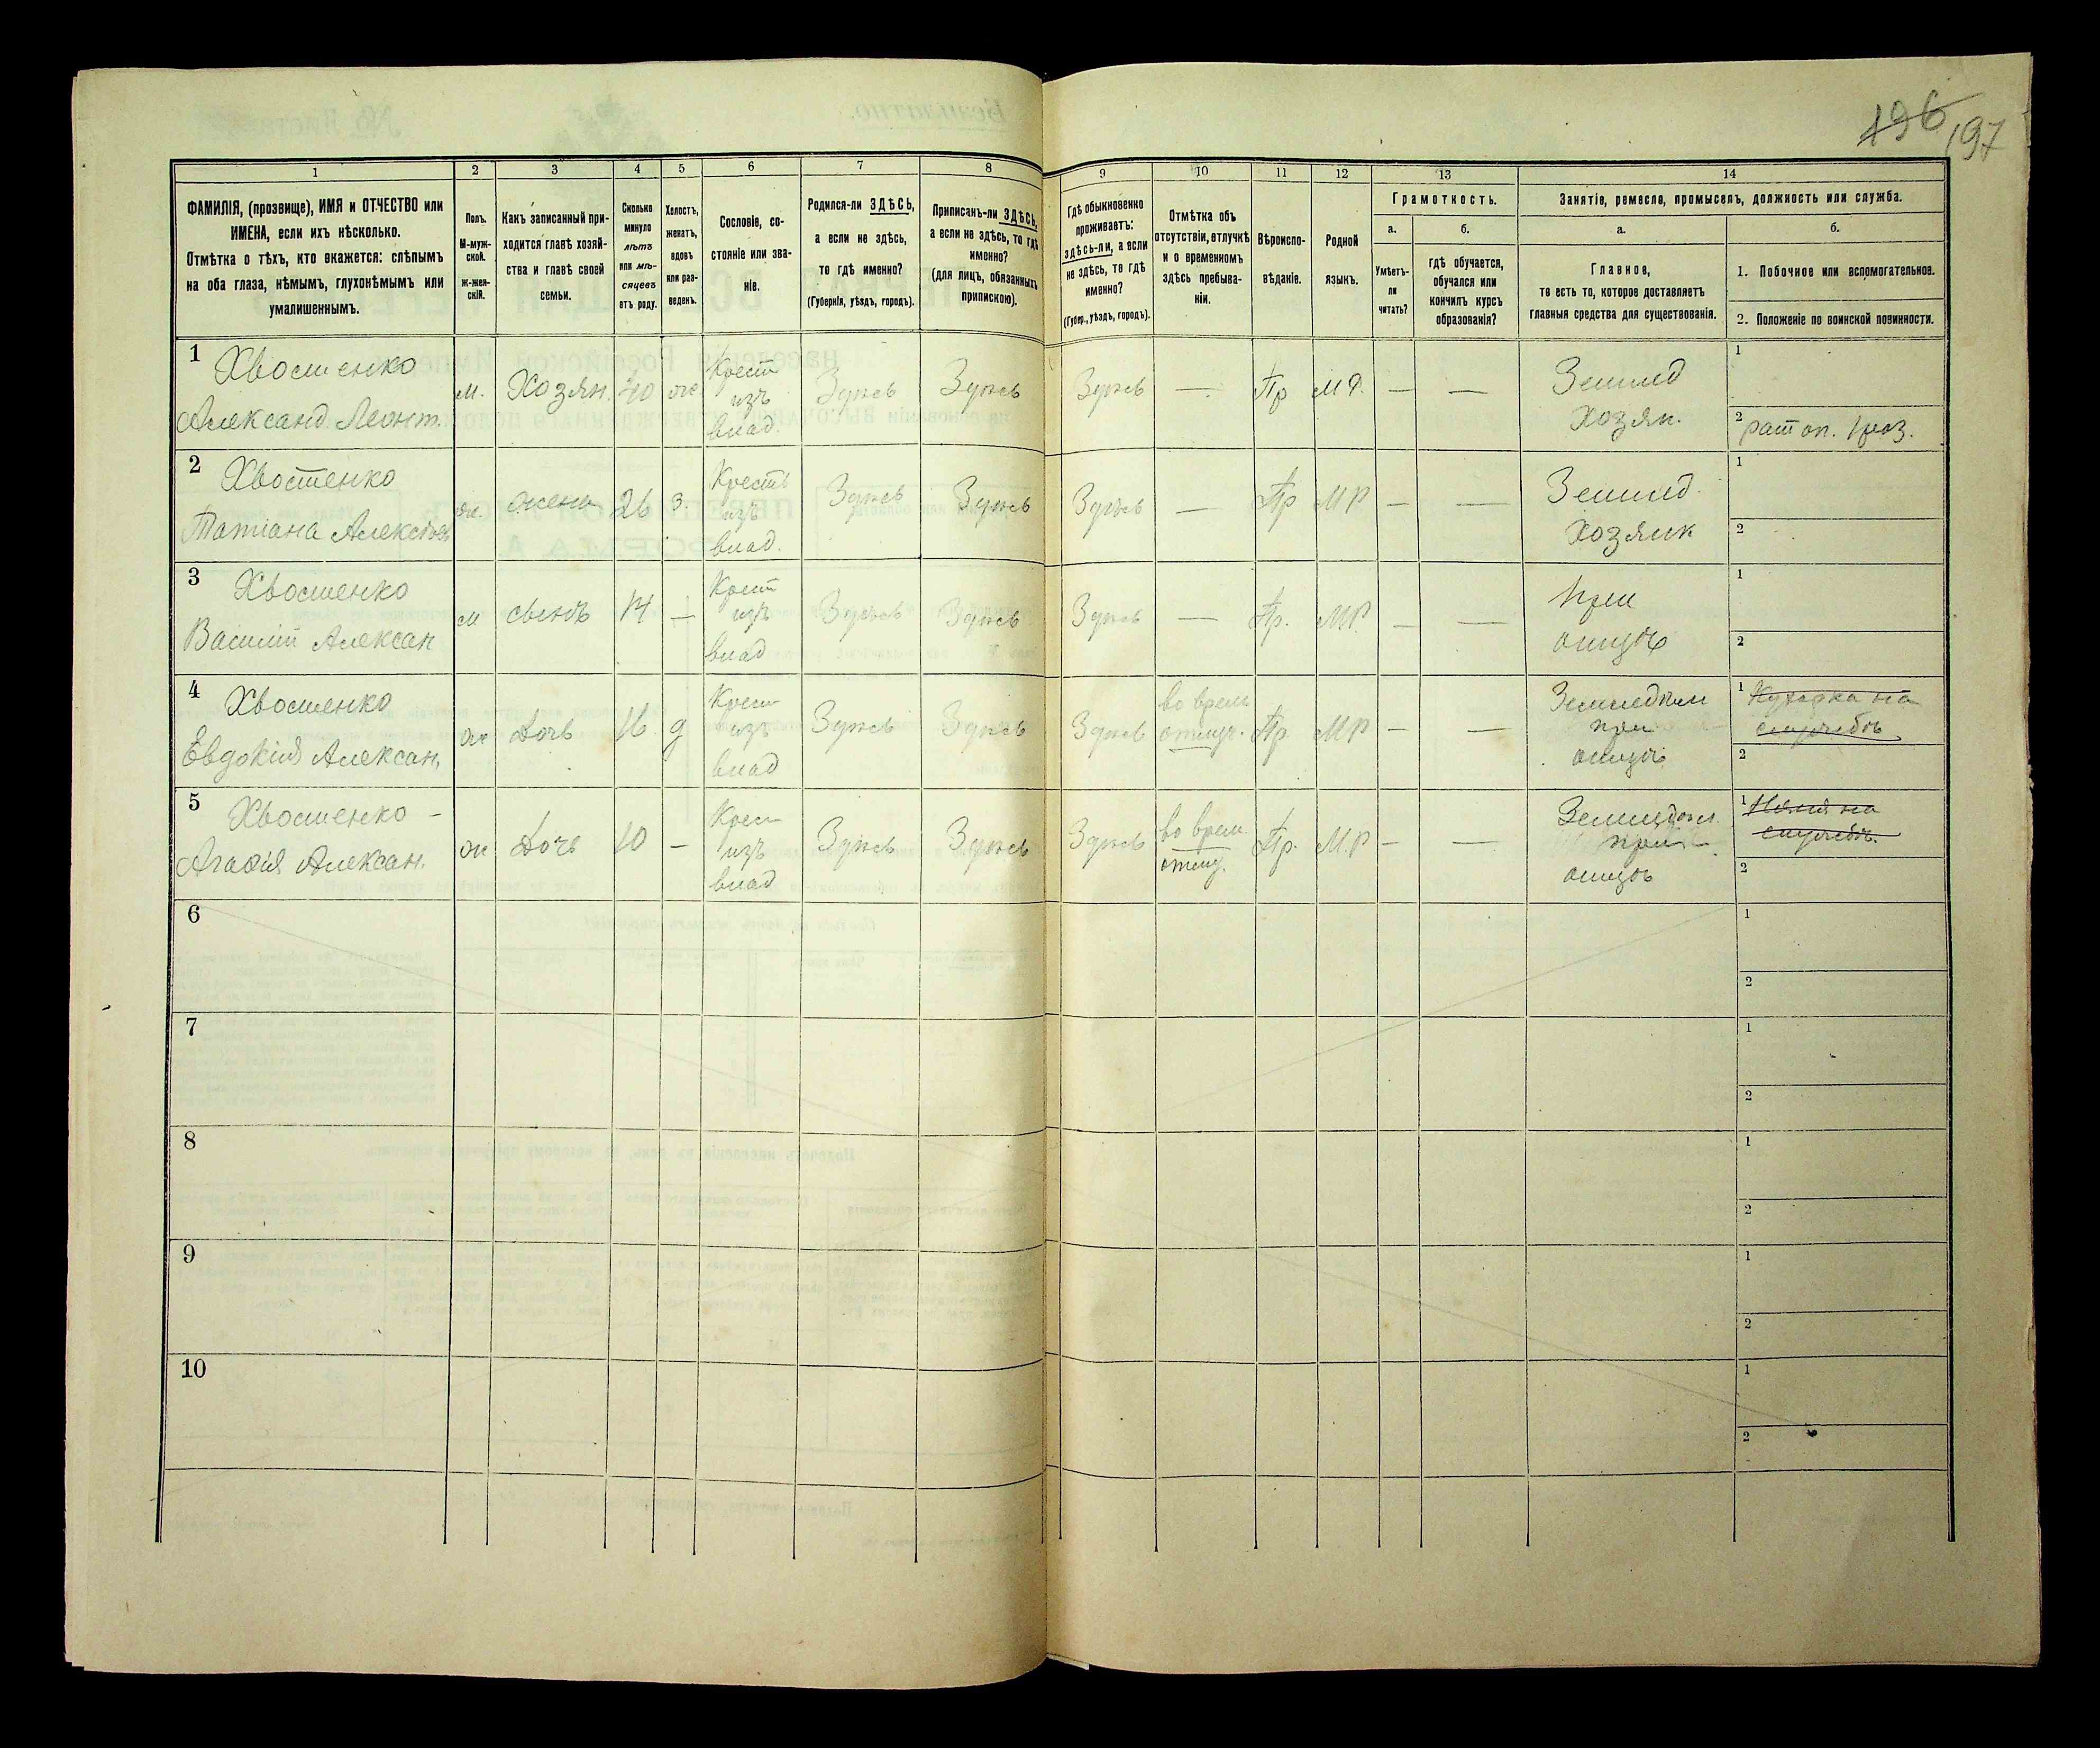 196 197
1 2 3 4 5 6 7 8 9 10 11 12 13 14
ФАМИЛІЯ, (прозвище), ИМЯ и ОТЧЕСТВО или
ИМЕНА, если ихъ нѣсколько.
Отмѣтка о тѣхъ, кто окажется: слѣпымъ
на оба глаза, нѣмымъ, глухонѣмымъ или
умалишеннымъ.
Полъ.
М-муж-
ской.
ж-жен-
скій.
Какъ записанный при-
ходится главѣ хозяй-
ства и главѣ своей
семьи.
Сколько
минуло
лѣтъ
или мѣ-
сяцевъ
отъ роду.
Холостъ,
женатъ,
вдовъ
или раз-
веденъ.
Сословіе, со-
стояніе или зва-
ніе.
Родился-ли ЗДѢСЬ,
а если не здѣсь,
то гдѣ именно?
(Губернія, уѣздъ, городъ).
Приписанъ-ли ЗДѢСЬ,
а если не здѣсь, то гдѣ
именно?
(для лицъ, обязанныхъ
припискою).
Гдѣ обыкновенно
проживаетъ:
здѣсь-ли, а если
не здѣсь, то гдѣ
именно?
(Губер., уѣздъ, городъ).
Отмѣтка объ
отсутствіи, отлучкѣ
и о временномъ
здѣсь пребыва-
ніи.
Вѣроиспо-
вѣданіе.
Родной
языкъ.
Грамотность.
а.
Умѣетъ-
ли
читать?
б.
гдѣ обучается,
обучался или
кончилъ курсъ
образованія?
Занятіе, ремесло, промыселъ, должность или служба.
а.
Главное,
то есть то, которое доставляетъ
главныя средства для существованія.
б.
1. Побочное или вспомогательное.
2. Положеніе по воинской повинности.
1
Хвостенко
Александ Леонт.
м.
Хозян.
40
же.
Крест
изъ
влад.
Здѣсь
Здѣсь
Здѣсь
—
Пр
М Р.
—
—
Землед
хозян.
1
2 рат оп. 1 раз.
2
Хвостенко
Татіана
ж.
жена
26
з.
Крестъ
изъ
влад.
Здѣсь
Здѣсь
Здѣсь
—
Пр
М Р
—
—
Землед.
хозяик
1
2
3
Хвостенко
Василій Алексан
м
сынъ
14
—
Крест
изъ
влад
Здѣсь
Здѣсь
Здѣсь
—
Пр.
МР.
—
—
при
отцѣ
1
2
4
Хвостенко
Евдокія Алексан,
ж
Дочь
16
д
Крест
изъ
влад
Здѣсь
Здѣсь
Здѣсь
во врем
отлуч.
Пр
М Р
—
—
Земледѣл
при
отцѣ
1 Кухарка на
службѣ
2
5
Хвостенко -
Агафія Алексан.
ж
Дочь
10
-
Крес
изъ
влад
Здѣсь
Здѣсь
Здѣсь
во врем.
отлу.
Пр.
М.Р
—
—
Земледѣл.
при
отцѣ
1 Няня на
службѣ.
2
6
1
2
7
1
2
8
1
2
9
1
2
10
1
2